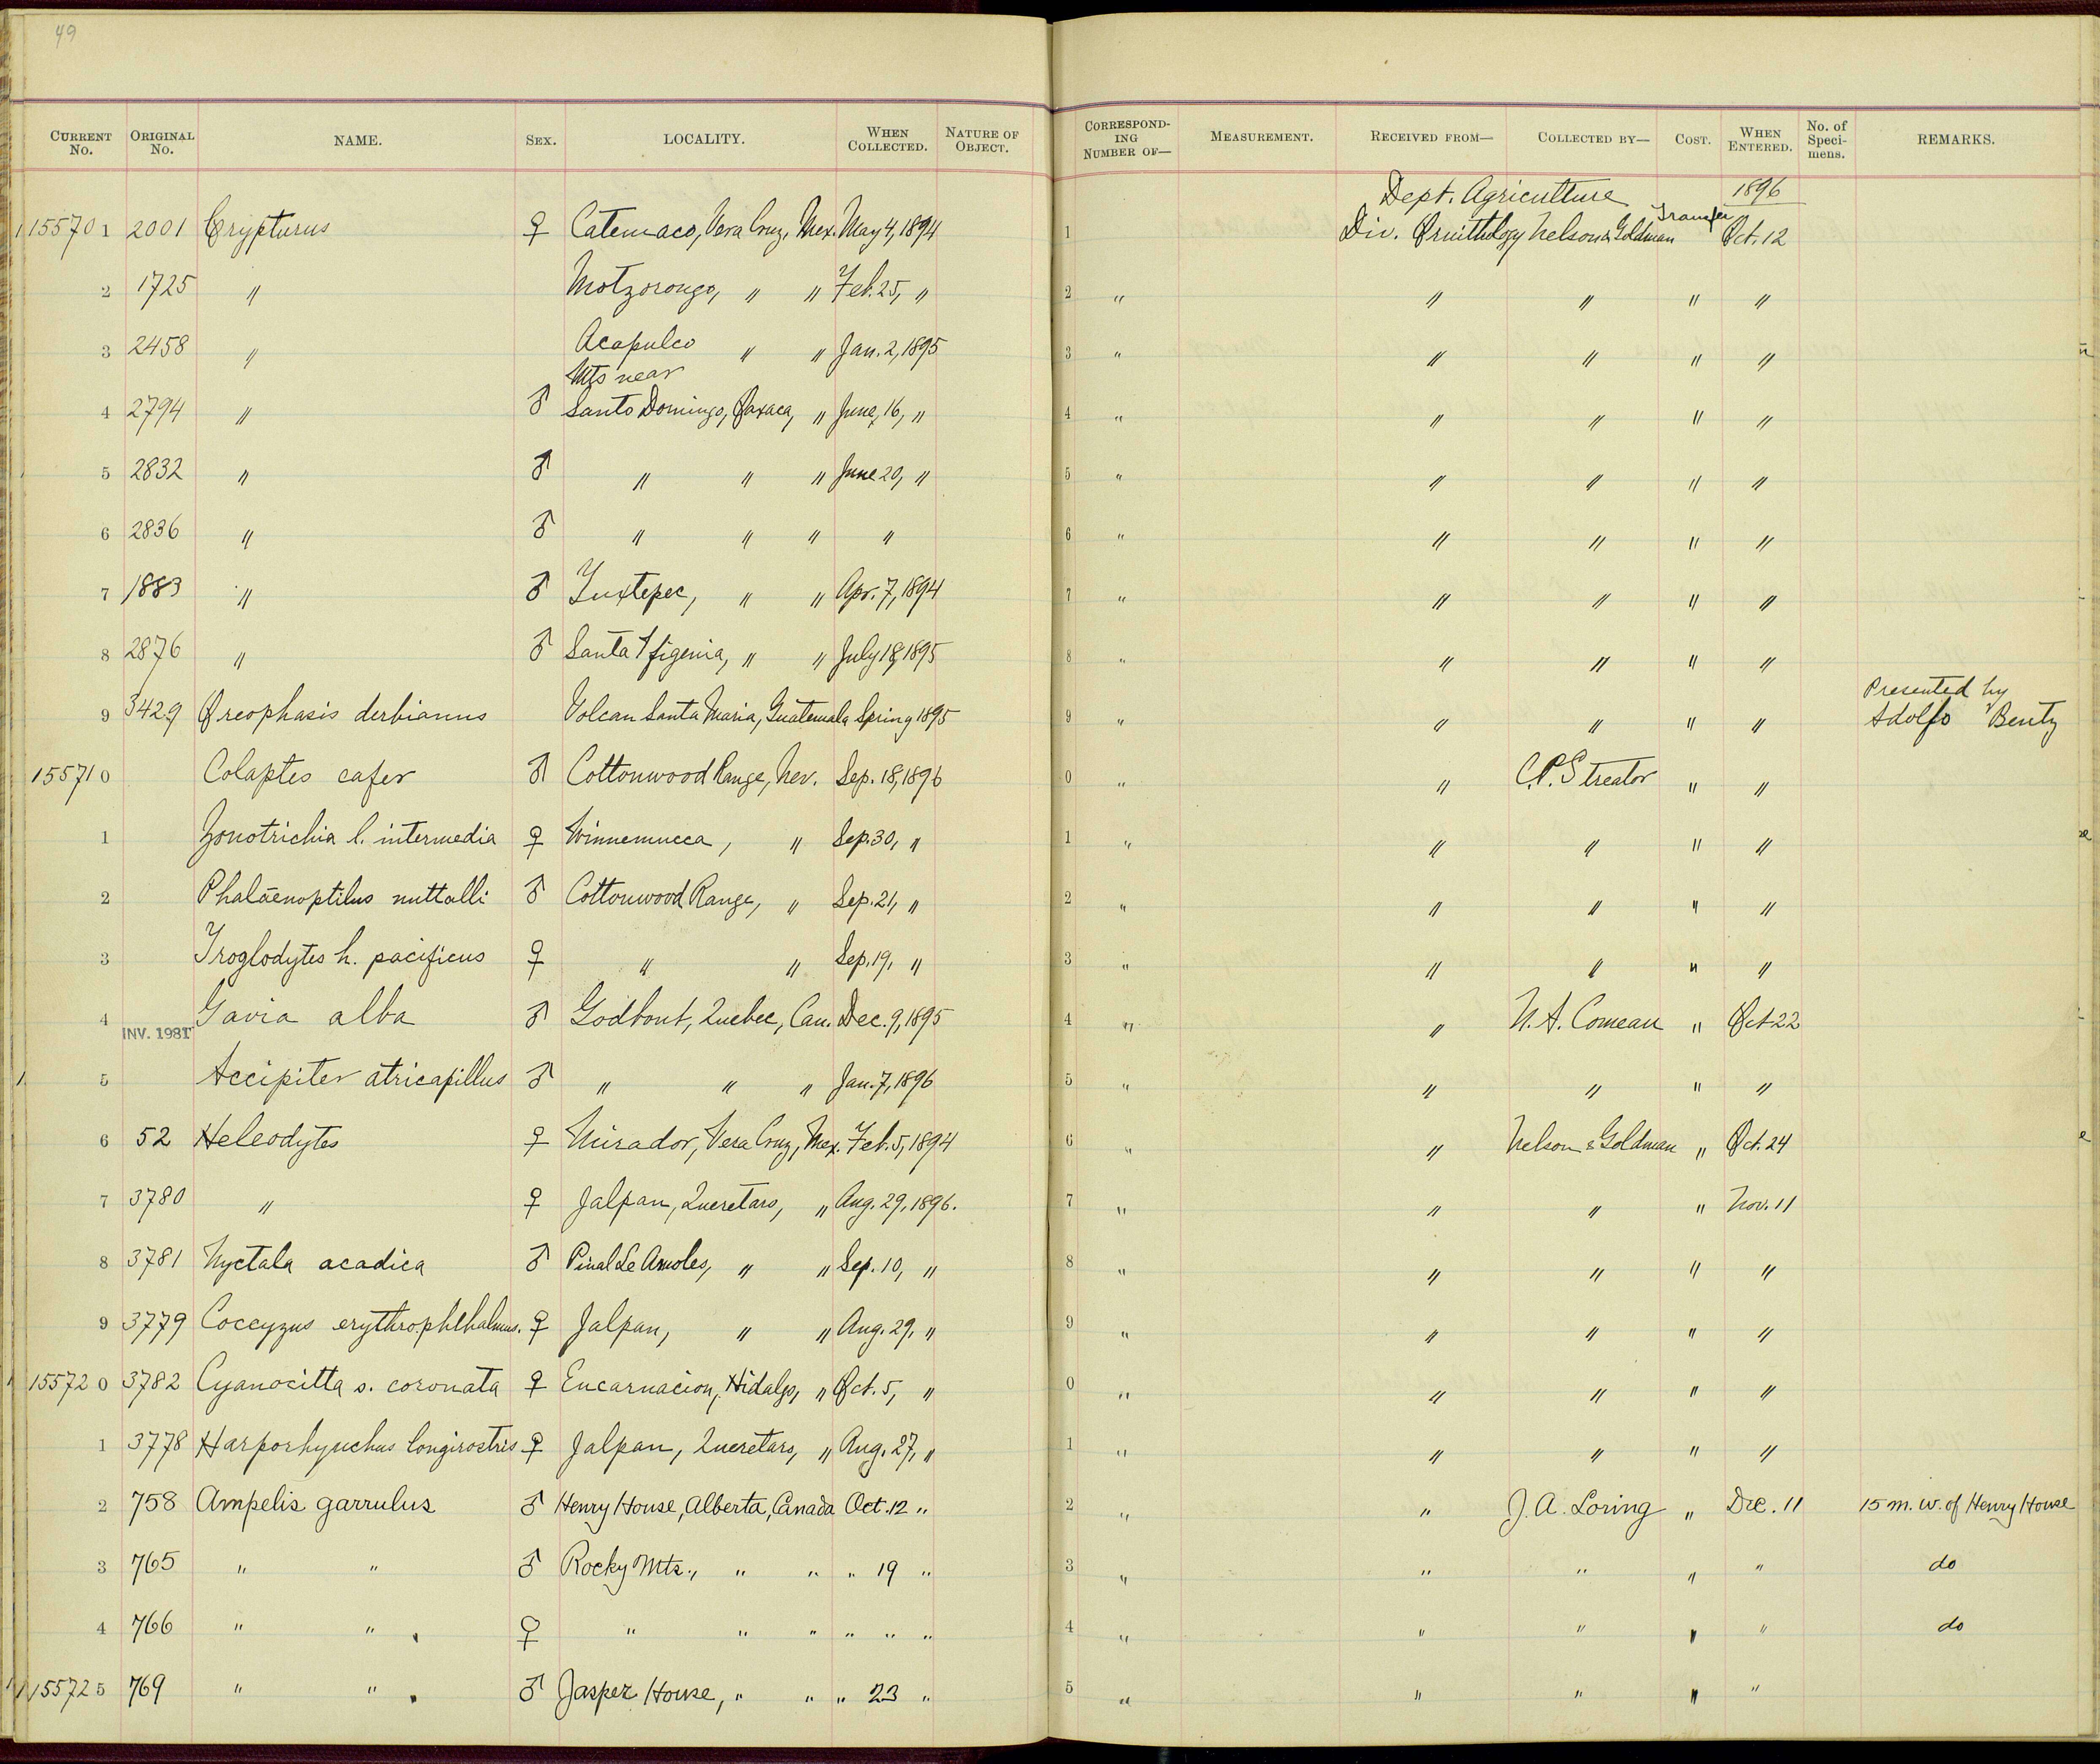 49
CURRENT No. ORIGINAL No. NAME. SEX. LOCALITY. WHEN COLLECTED. NATURE OF OBJECT. CORRESPONDING NUMBER OF— MEASUREMENT. RECEIVED FROM— COLLECTED BY— COST. WHEN ENTERED. No. of Specimens. REMARKS.
Dept. Agriculture 1896
155701 2001 Crypturus ♀ Catemaco, Vera Cruz, Mex. May 4, 1894 1 Div. Ornithology Nelson & Goldman Transfer Oct. 12
2 1725 " Motzorongo, " " Feb. 25, " 2 " " " " "
3 2458 " Acapulco " " Jan. 2, 1895 3 " " " " "
Mts near
4 2794 " ♂ Santo Domingo, Oaxaca, " June, 16, " 4 " " " " "
5 2832 " ♂ " " " June 20, " 5 " " " " "
6 2836 " ♂ " " " " 6 " " " " "
7 1883 " ♂ Tuxtepec, " " Apr. 7, 1894 7 " " " " "
8 2876 " ♂ Santa Ifigenia, " " July 18, 1895 8 " " " " "
9 3429 Oreophasis derbianus Volcan Santa Maria, Guatemala Spring 1895 9 " " " " " Presented by
Adolfo Bentz
155710 Colaptes cafer ♂ Cottonwood Range, Nev. Sep. 18, 1896 0 " " C.P. Streator " "
1 Zonotrichia l. intermedia ♀ Winnemucca, " Sep. 30, " 1 " " " " "
2 Phalaenoptilus nuttalli ♂ Cottonwood Range, " Sep. 21, " 2 " " " " "
3 Troglodytes h. pacificus ♀ " " Sep. 19, " 3 " " " " "
4 Gavia alba ♂ Godbout, Quebec, Can. Dec. 9, 1895 4 " " N. A. Comeau " Oct 22
INV. 1981
5 Accipiter atricapillus ♂ " " " Jan. 7, 1896 5 " " " " "
6 52 Heleodytes ♀ Mirador, Vera Cruz, Mex. Feb. 5, 1894 6 " " Nelson & Goldman " Oct. 24
7 3780 " ♀ Jalpan, Queretaro, " Aug. 29, 1896. 7 " " " " Nov. 11
8 3781 Nyctala acadica ♂ Pinal de Amoles, " " Sep. 10, " 8 " " " " "
9 3779 Coccyzus erythrophthalmus. ♀ Jalpan, " " Aug. 29, " 9 " " " " "
155720 3782 Cyanocitta s. coronata ♀ Encarnacion, Hidalgo, " Oct. 5, " 0 " " " " "
1 3778 Harporhynchus longirostris ♀ Jalpan, Queretaro, " Aug. 27, " 1 " " " " "
2 758 Ampelis garrulus ♂ Henry House, Alberta, Canada Oct. 12 " 2 " " J. A. Loring " Dec. 11 15 m. w. of Henry House
3 765 " " ♂ Rocky Mts., " " " 19 " 3 " " " " " do
4 766 " " ♀ " " " " " " 4 " " " " " do
155725 769 " " ♂ Jasper House, " " " 23 " 5 " " " " "